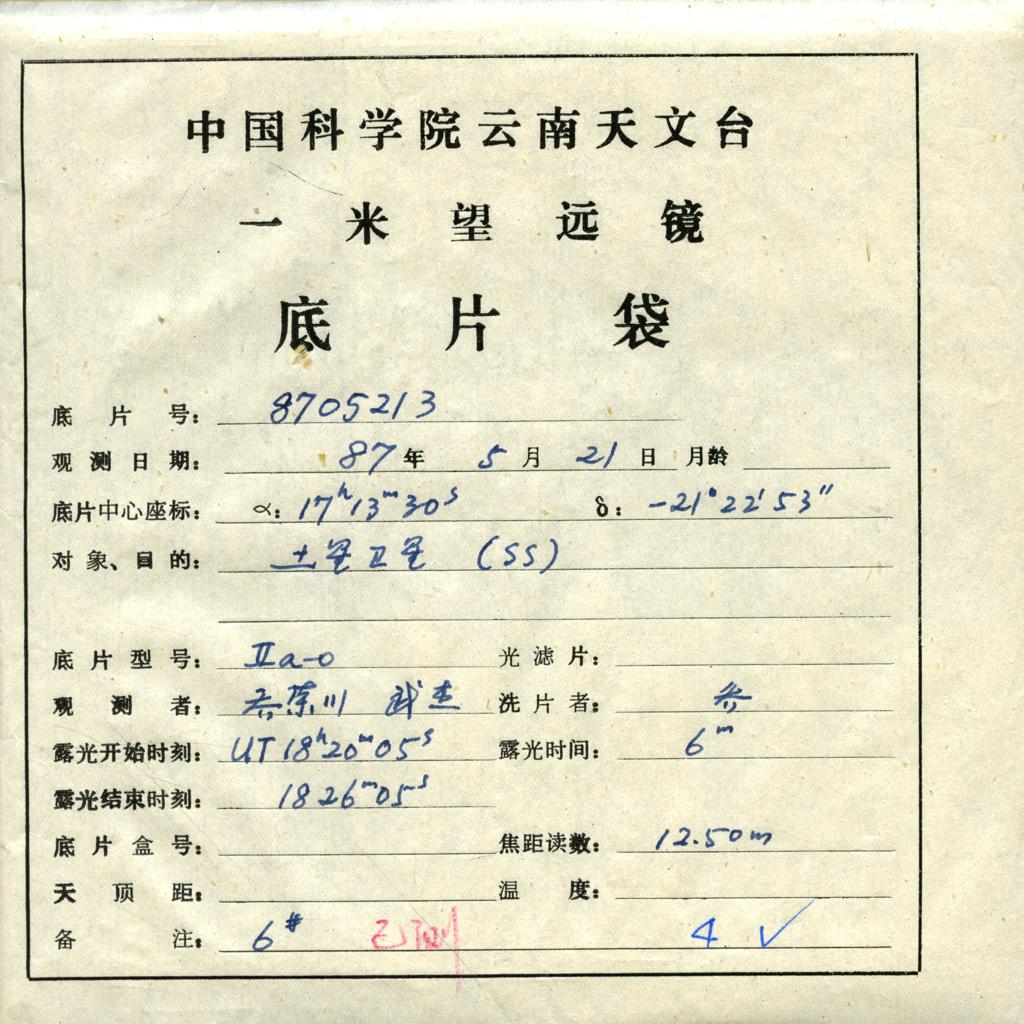 中国科学院云南天文台
一米望远镜
底片袋
底片号: 8705213
观测日期: 87年 5月 21日 月龄
底片中心座标: α: 17ʰ13ᵐ30ˢ δ: -21°22′53″
对象、目的: 土星卫星 (SS)
底片型号: IIa-o 光滤片:
观测者: 武杰 洗片者:
露光开始时刻: UT 18ʰ20ᵐ05ˢ 露光时间: 6ᵐ
露光结束时刻: 18 26ᵐ05ˢ
底片盒号: 焦距读数: 12.50m
天顶距: 温度:
备注: 6# 已测 4 ✓